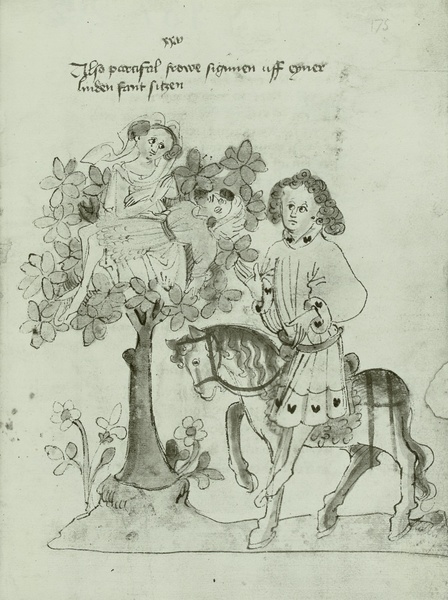 xxv
175
Also parcifal frowe sigunen uff eyner
linden fant sitzen